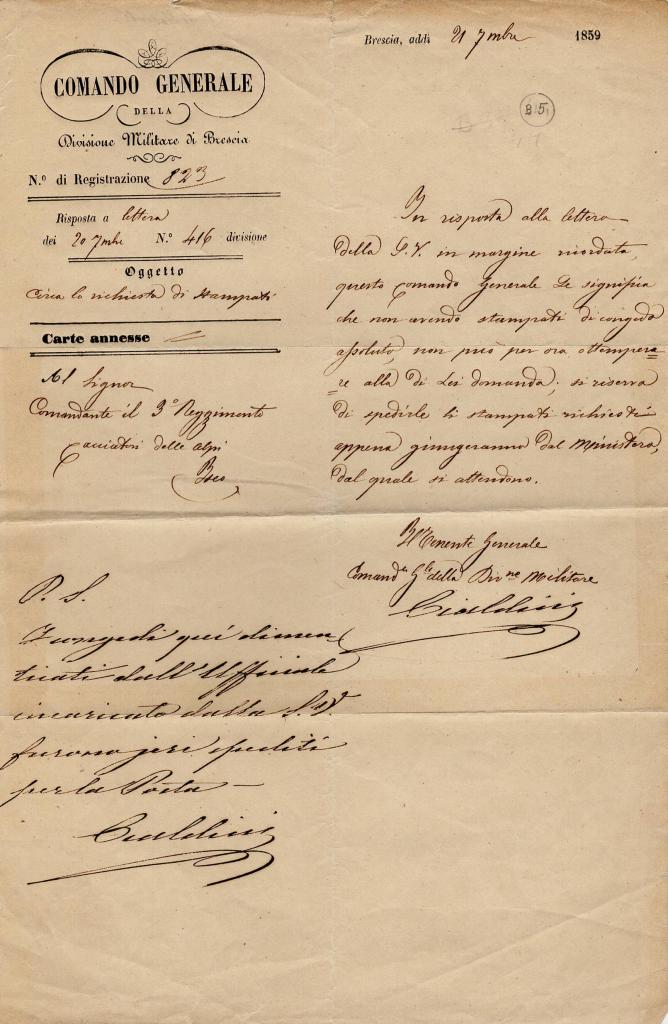 COMANDO GENERALE
DELLA
Divisione Militare di Brescia
N.º di Registrazione 823
Risposta a lettera
dei 20 7mbre N.º 416 divisione
Oggetto
Circa la richiesta di stampati
Carte annesse
Al Signor
Comandante il 3º Reggimento
Cacciatori delle alpi
Brescia, addì 21 7mbre 1859
B 5
In risposta alla lettera
della S.V. in margine ricordata,
questo Comando Generale Le significa
che non avendo stampati di congedo
assoluto, non può per ora ottempera=
=re alla di Lei domanda; si riserva
di spedirle li stampati richiesti
appena giungeranno dal Ministero,
dal quale si attendono.
Il Tenente Generale
Comandte Gle della Divne Militare
Cialdini
P. S.
I congedi quì dimen
ticati dall'Uffiziale
incaricato dalla S. V.
furono jeri spediti
per la Posta —
Cialdini